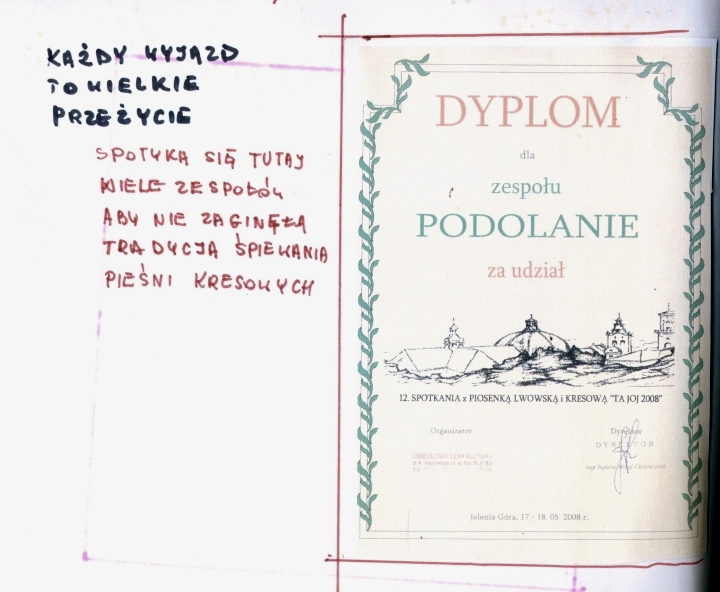 KAŻDY WYJAZD
TO WIELKIE
PRZEŻYCIE
SPOTYKA SIĘ TUTAJ
WIELE ZESPOŁÓW
ABY NIE ZAGINĘŁA
TRADYCJA ŚPIEWANIA
PIEŚNI KRESOWYCH
DYPLOM
dla
zespołu
PODOLANIE
za udział
12. SPOTKANIA z PIOSENKĄ LWOWSKĄ i KRESOWĄ "TA JOJ 2008"
Organizator
Dyrektor
DYREKTOR
OSIEDLOWY DOM KULTURY
Jelenia Góra, 17 - 18. 05. 2008 r.